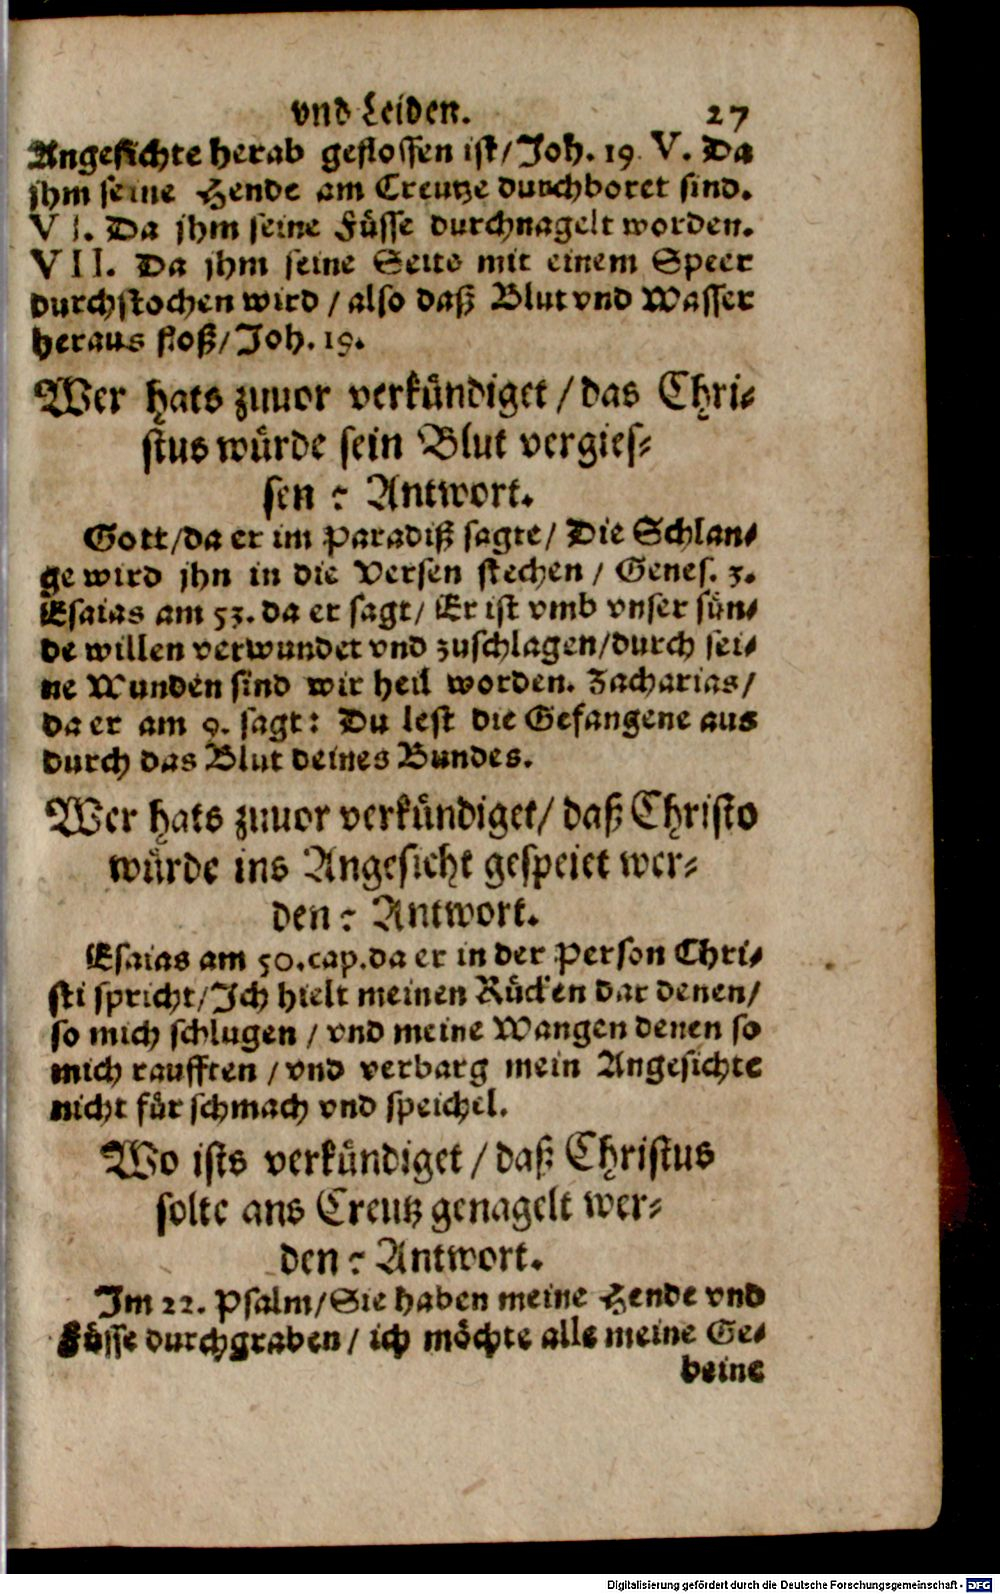 vnd Leiden. 27
Angesichte herab geflossen ist/Joh. 19 V. Da
jhm seine Hende am Creutze durchboret sind.
VI. Da jhm seine Füsse durchnagelt worden.
VII. Da jhm seine Seite mit einem Speer
durchstochen wird / also daß Blut vnd Wasser
heraus floß/Joh. 19.
Wer hats zuuor verkündiget / das Chri-
stus würde sein Blut vergies-
sen ? Antwort.
Gott/da er im Paradiß sagte/ Die Schlan-
ge wird jhn in die Versen stechen / Genes. 3.
Esaias am 53. da er sagt/ Er ist vmb vnser sün-
de willen verwundet vnd zuschlagen/durch sei-
ne Wunden sind wir heil worden. Zacharias/
da er am 9. sagt: Du lest die Gefangene aus
durch das Blut deines Bundes.
Wer hats zuuor verkündiget/ daß Christo
würde ins Angesicht gespeiet wer-
den ? Antwort.
Esaias am 50.cap.da er in der Person Chri-
sti spricht/Ich hielt meinen Rücken dar denen/
so mich schlugen / vnd meine Wangen denen so
mich raufften / vnd verbarg mein Angesichte
nicht für schmach vnd speichel.
Wo ists verkündiget / daß Christus
solte ans Creutz genagelt wer-
den ? Antwort.
Im 22. Psalm/Sie haben meine Hende vnd
Füsse durchgraben / ich möchte alle meine Ge-
beine
Digitalisierung gefördert durch die Deutsche Forschungsgemeinschaft - DFG